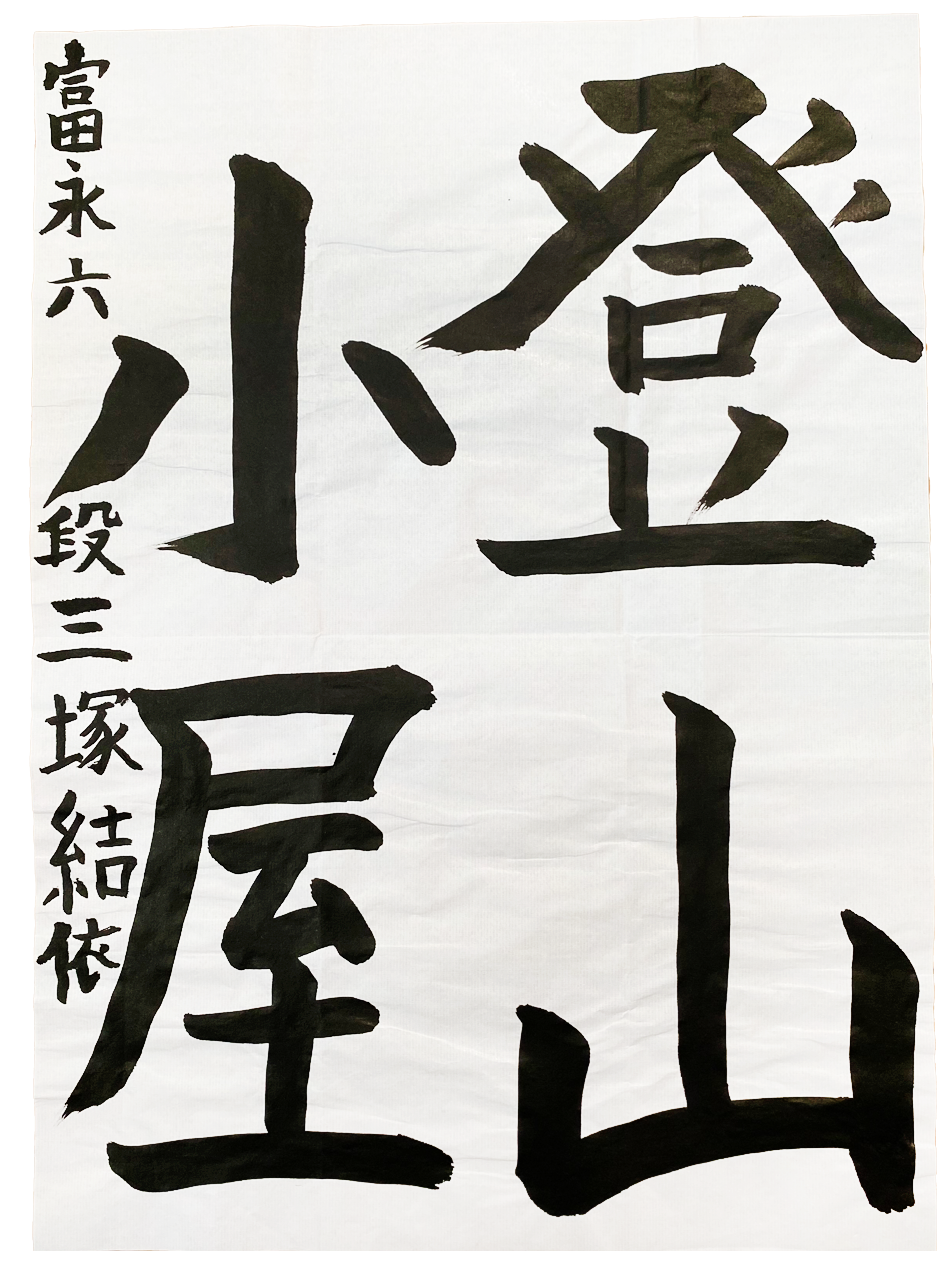 登山
小屋
富永六段三塚結依